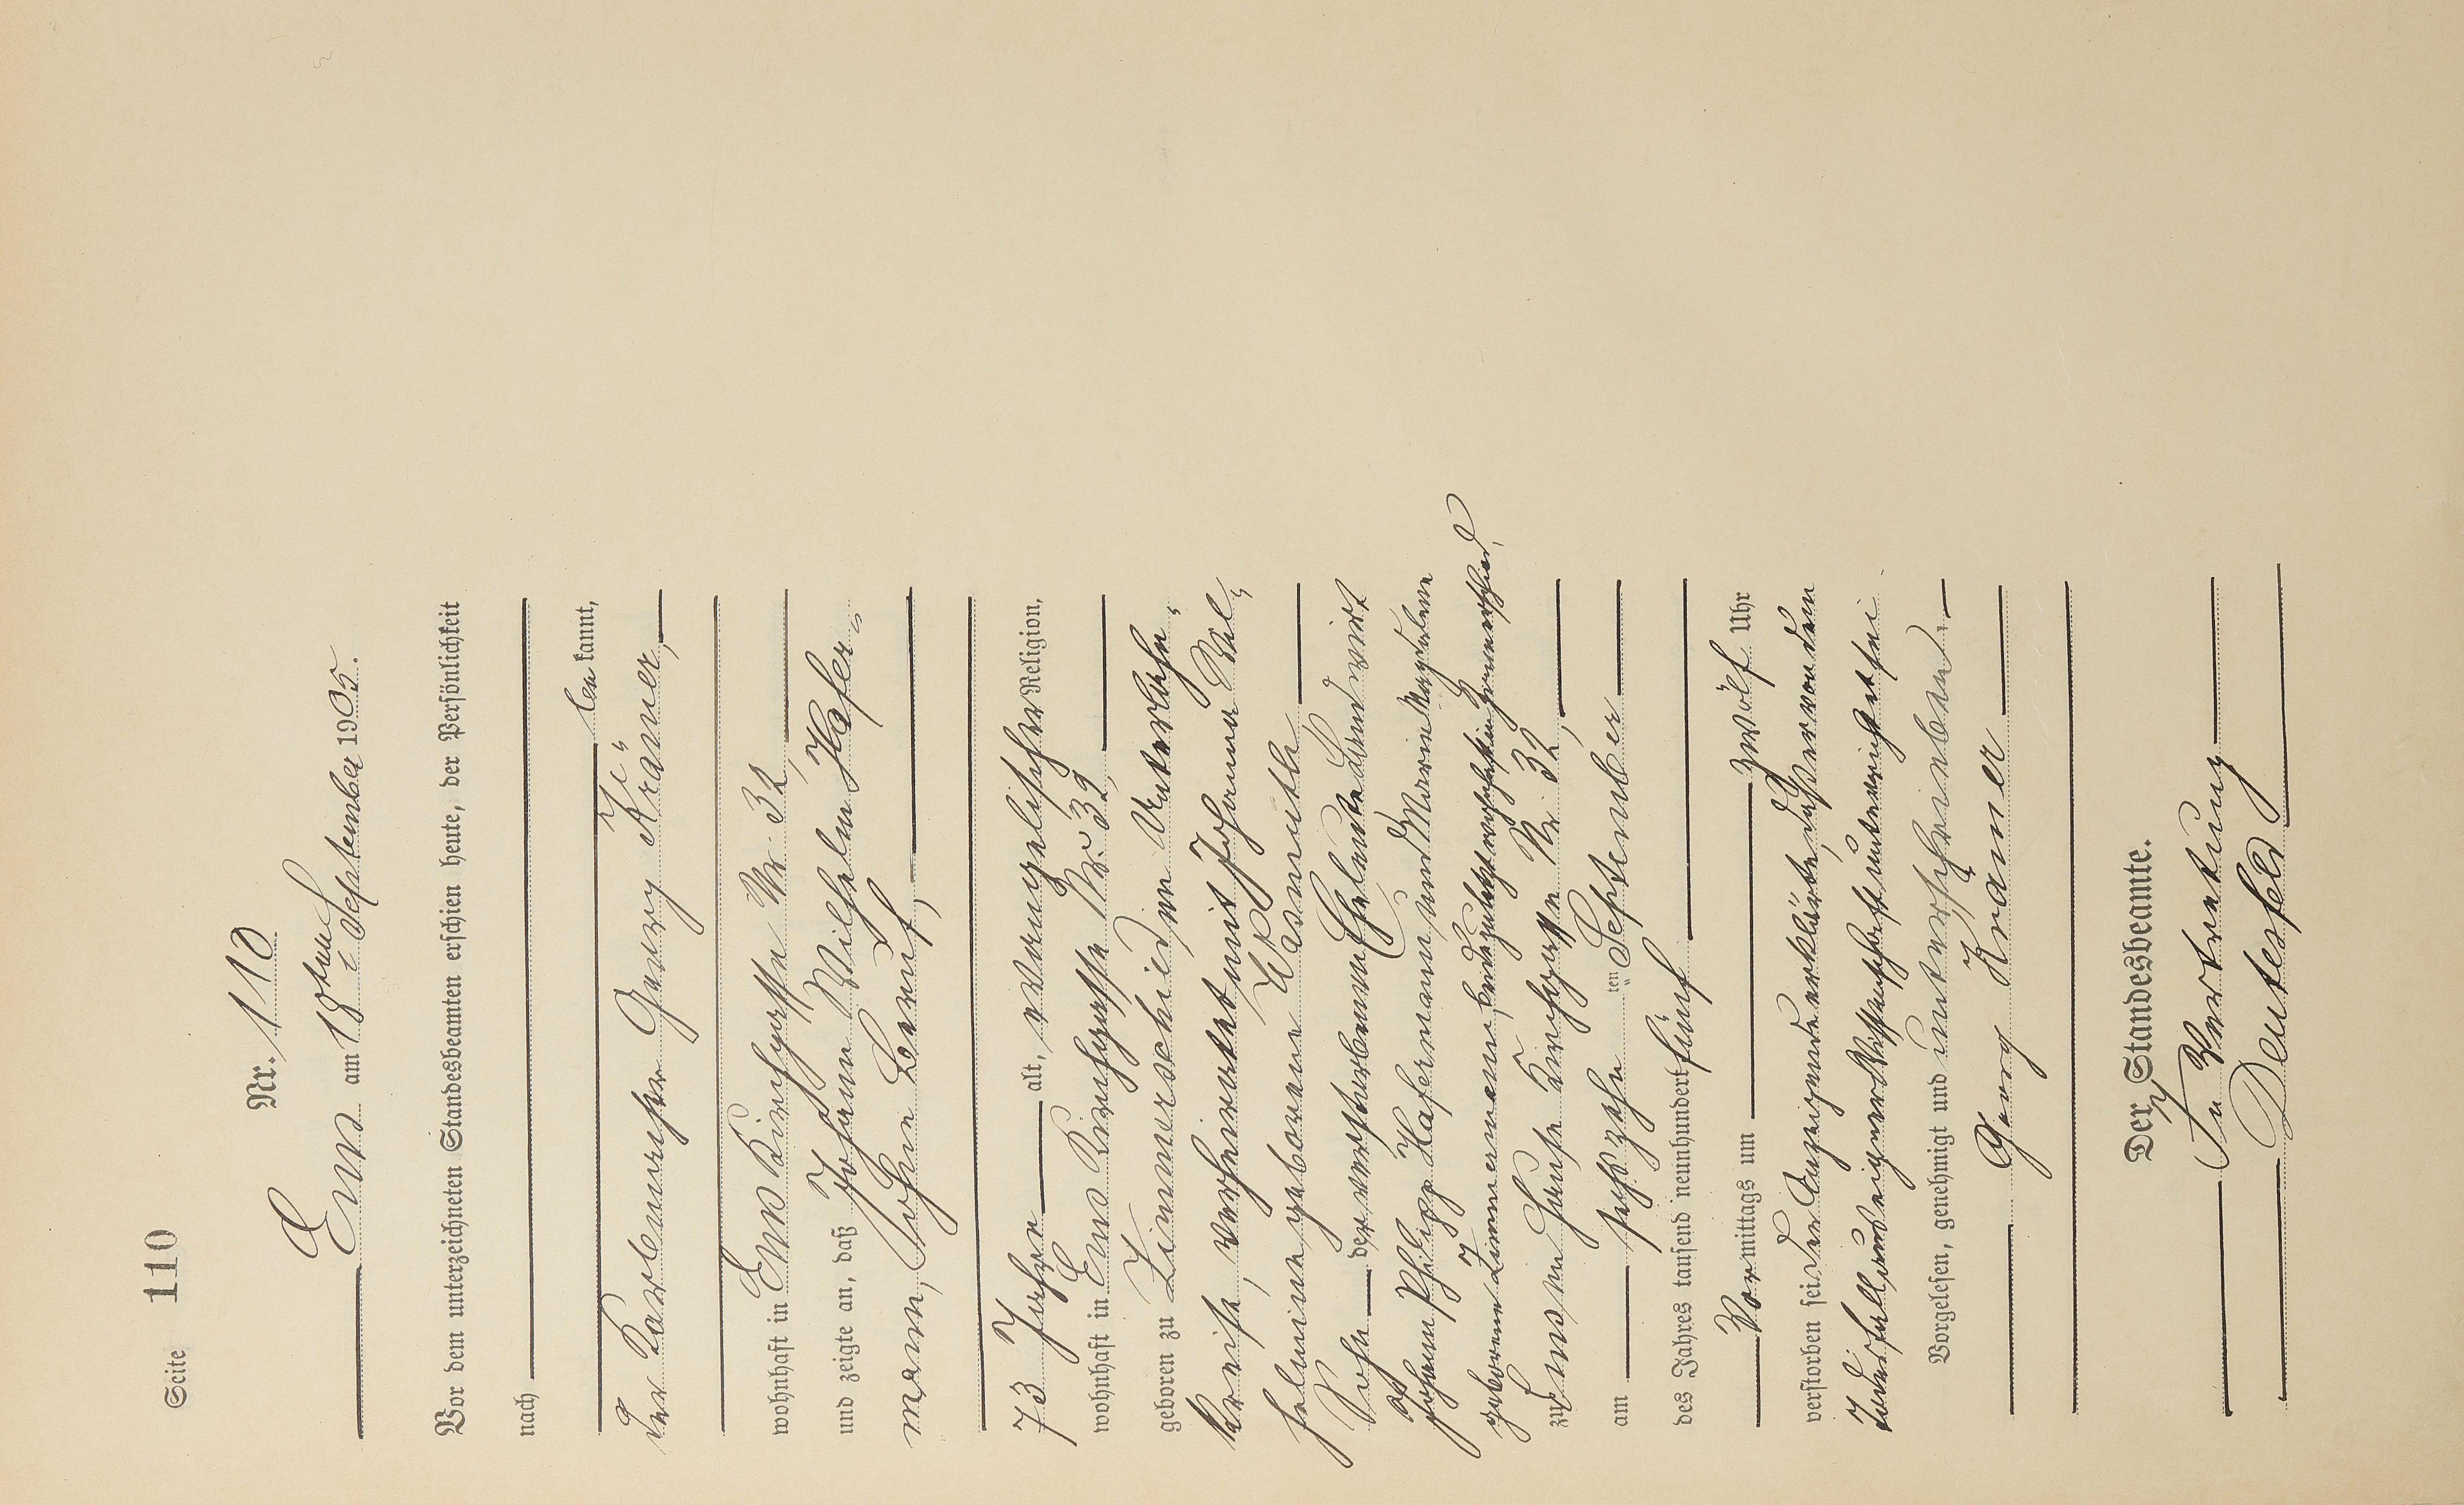 Seite 110
Nr. 110
Ems am 18ten September 1905.
Vor dem unterzeichneten Standesbeamten erschien heute, der Persönlichkeit
nach
bekannt,
der Badewascher Georg Krämer,
wohnhaft in Ems Kirchgasse Nr. 32,
und zeigte an, daß Johann Wilhelm Hafer-
mann, ohne Beruf,
73 Jahre alt, evangelischer Religion,
wohnhaft in Ems Kirchgasse Nr. 32,
geboren zu Zimmerschied, im Unterlahn-
kreise, verheiratet mit Johanna Wil-
helmine geborene Wasmuth
Sohn der verstorbenen Eheleute Landwirt
Johann Philipp Hafermann und Marie Magdalene
geborene Zimmermann, beide zuletzt wohnhaft in Zimmerschied,
zu Ems im Hause Kirchgasse Nr. 32,
am sechszehn ten September
des Jahres tausend neunhundert fünf
Vormittags um zwölf Uhr
verstorben sei. Der Anzeigende erklärte, daß er von dem
Todesfall aus eigener Wissenschaft unterrichtet sei.
Vorgelesen, genehmigt und unterschrieben.
Georg Krämer
Der Standesbeamte.
In Vertretung
Deutesfeld